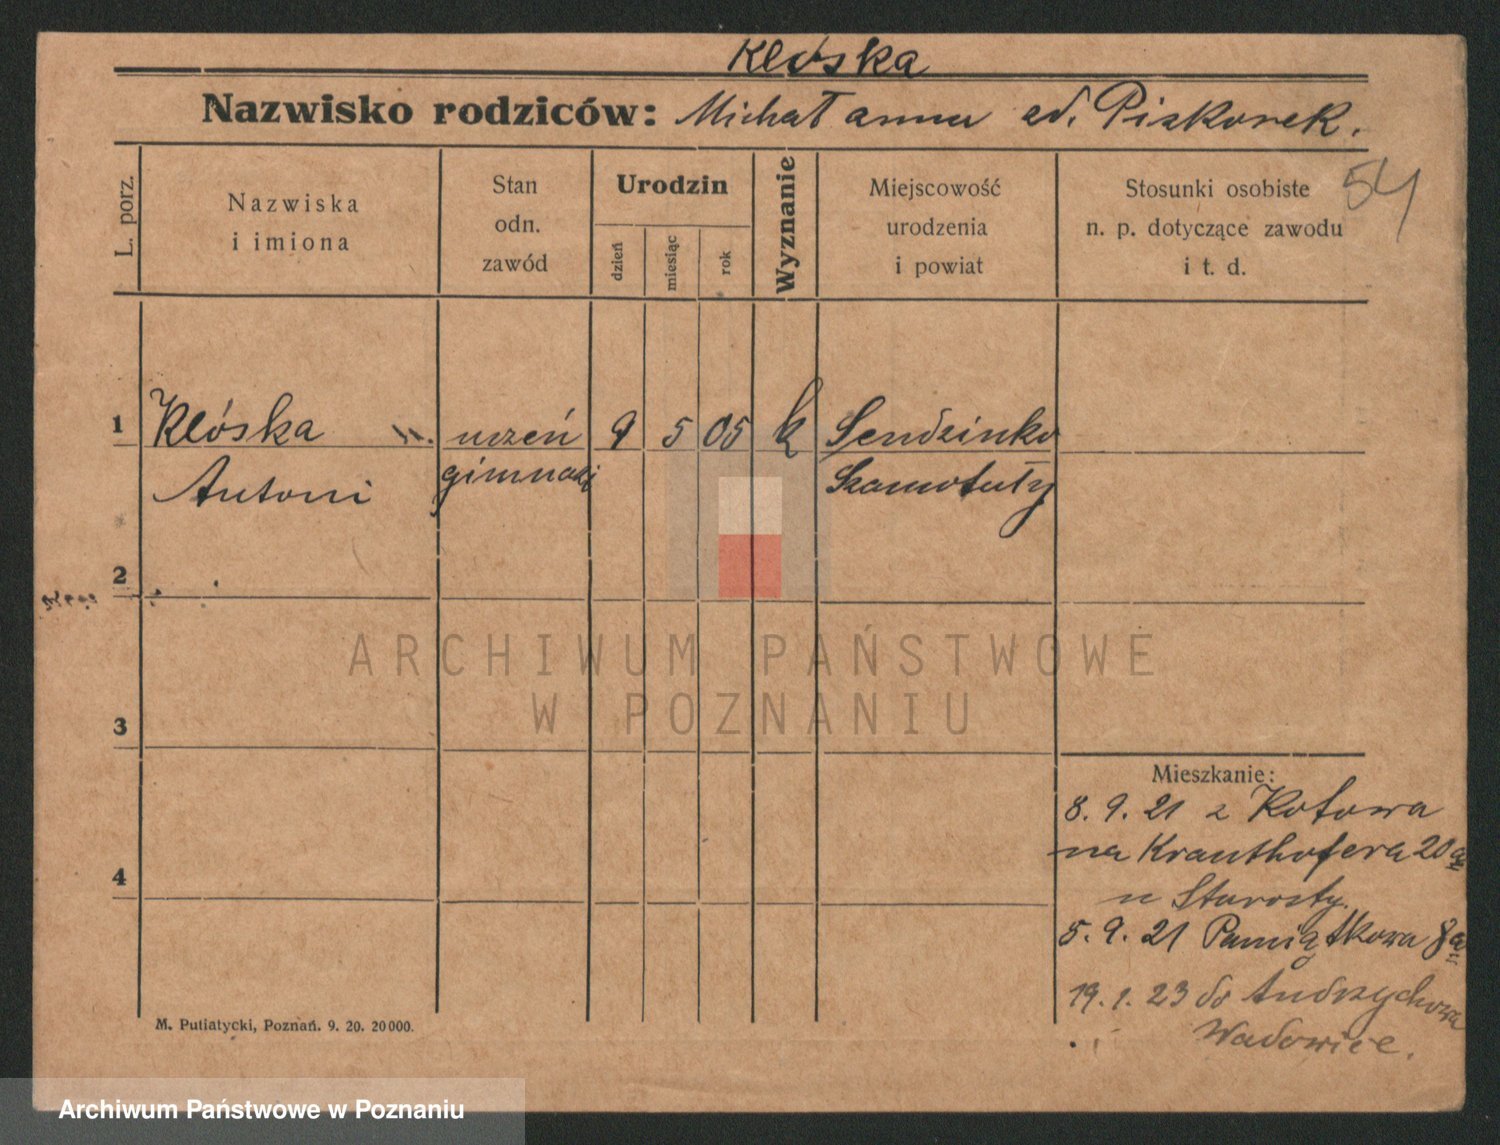 Klóska
Nazwisko rodziców: Michał Anna od. Piskorek.
54
L. porz.
Nazwiska
i imiona
Stan
odn.
zawód
Urodzin
dzień
miesiąc
rok
Wyznanie
Miejscowość
urodzenia
i powiat
Stosunki osobiste
n. p. dotyczące zawodu
i t. d.
1 Klóska uczeń 9 5 05 k Sendzinko
Antoni gimnazj Szamotuły
2
3
4
Mieszkanie:
8. 9. 21 z Kotowa
na Krauthofera 20a
u Starosty.
5. 9. 21 Pamiątkowa 8a
19. 1. 23 do Andrychowa
Wadowice.
M. Putiatycki, Poznań. 9. 20. 20000.
ARCHIWUM PAŃSTWOWE
W POZNANIU
Archiwum Państwowe w Poznaniu